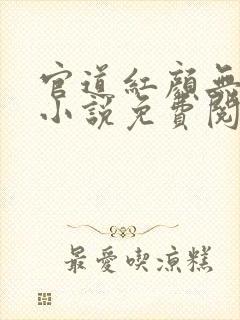 官道紅顏無
小說免費閱
最愛喫涼糕